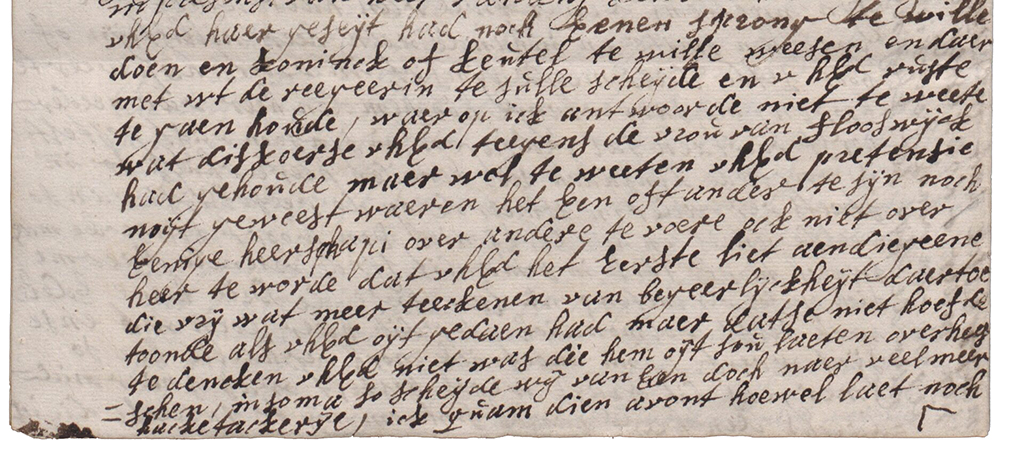 vhEd haer geseijt had noch Eenen sprong te wille
doen en koninck of keutel te wille weesen en daer
met wt de regeerin te sulle scheijde en v hEd ruste
te gaen houde, waer op ick antwoorde niet te weete
wat diskoerse vhEd teegens de vrou van Slooswijck
had gehoude maer wel te weeten vhEd pretensie
noijt geweest waeren het Een oft ander te sijn noch
Eenige heerschapi over andere te voere ock niet over
heer te worde dat vhEd het Eerste liet aen diegeene
die vrij wat meer teeckenen van begeerlijckheijt daer toe
toonde als vhEd oijt gedaen had maer datse niet hoefde
te dencken vhEd niet was die hem oijt sou laeten overheer
=schen, in soma so scheijde wij van Een doch naer veel meer
hacketackerije, ick quam dien avont hoewel laet noch